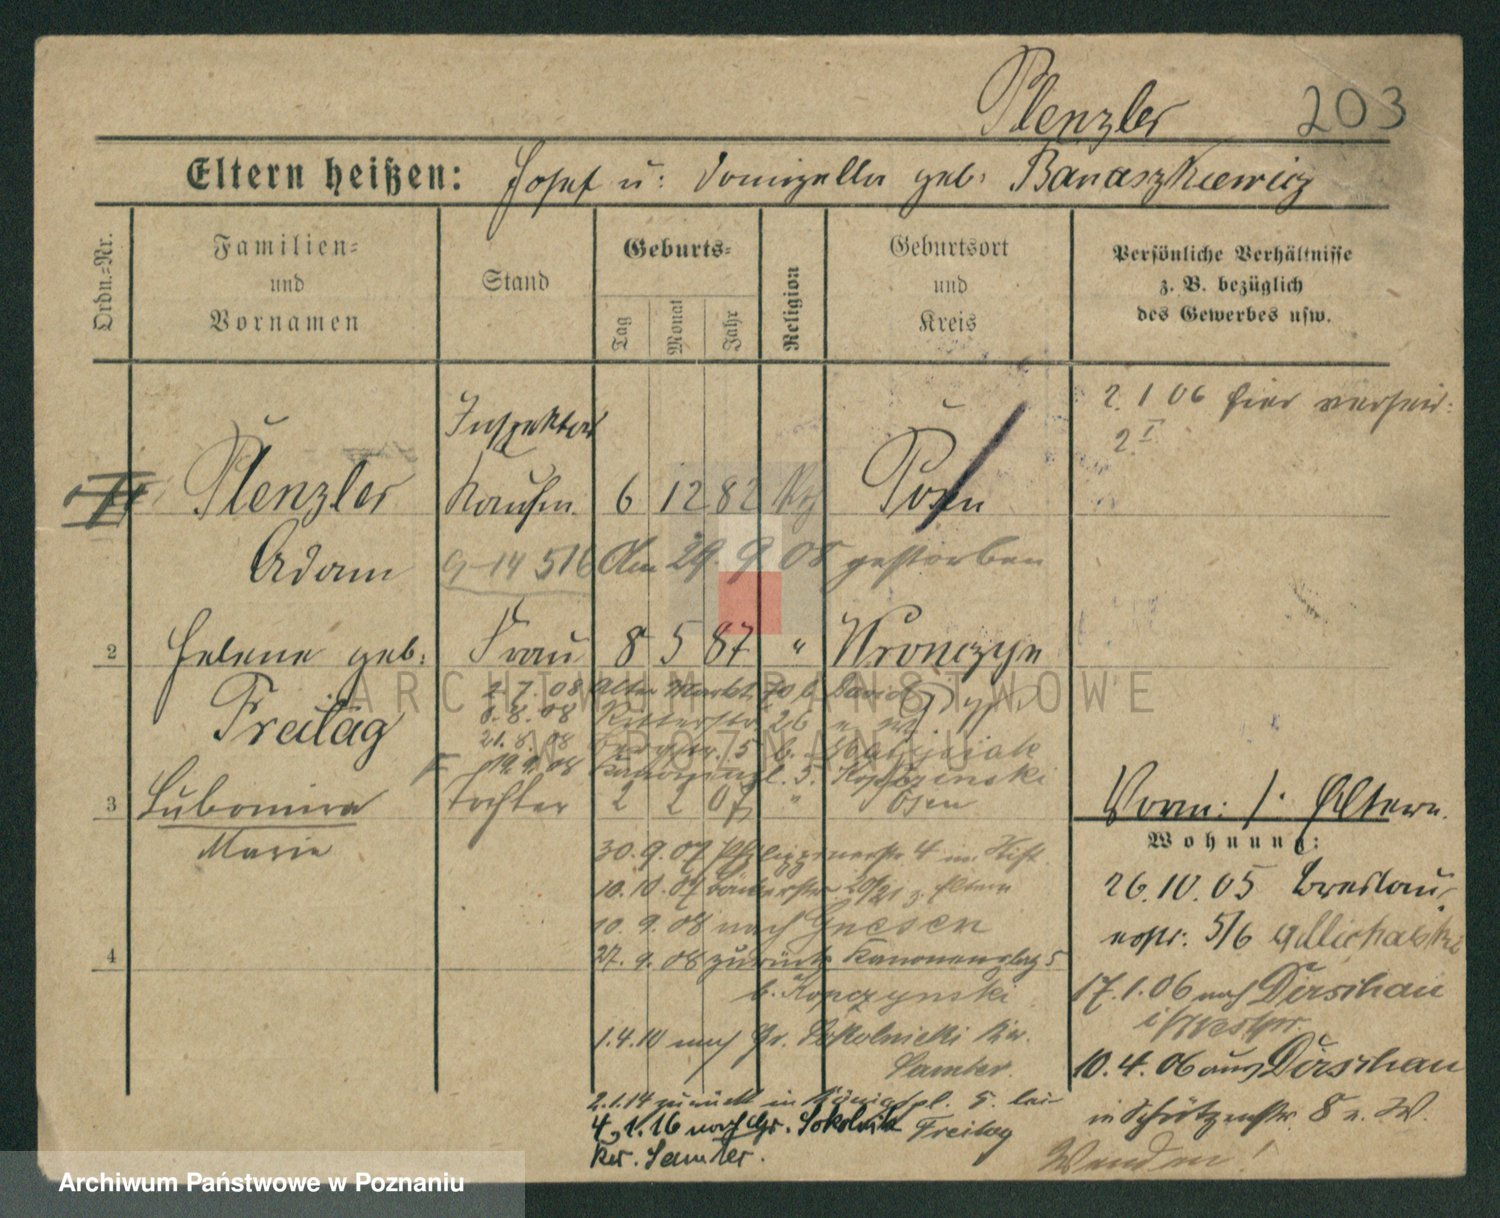 Plenzler 203
Eltern heißen: Josef u: Domizella geb. Banaszkiewicz
Ordn.=Nr.
Familien=
und
Vornamen
Stand
Geburts=
Tag
Monat
Jahr
Religion
Geburtsort
und
Kreis
Persönliche Verhältnisse
z. B. bezüglich
des Gewerbes usw.
2. 1 06 hier verheir:
2 I
Inspektor
Plenzler Kaufm. 6 12 82 Posen
Adam G-14 516 Am 29. 9 08 gestorben
2 Helene geb: Frau 8 5 87 " Wronczyn
Freitag
2. 7. 08 Alter Markt 70 b.
8. 8. 08 Ritterstr. 26
21. 8. 08 5 b.
19. 9. 08 Kanonenpl. 5. Kopczinski
3 Lubomira Tochter 2 2 07 " Posen
Marie
Vorm: /: Eltern.
Wohnung:
30. 9. 07 4 im Stift
10. 10. 07 Bäckerstr. 20/21 z. Eltern
10. 9. 08 nach Gnesen
4
27. 9. 08 zurück Kanonenplatz 5
b. Kopczynski
1. 4. 10 nach Gr. Sokolnicki Kr.
Samter.
2. 1. 14 zurück in Königspl. 5. bei
Freitag
4. 1. 16 nach Gr. Sokolnik
Kr. Samter.
26. 10. 05 Breslau
str. 5/6 Michalski
17. 1. 06 nach Dirschau
i/Westpr.
10. 4. 06 aus Dirschau
in Schützenstr. 8 b. W.
Wenden!
ARCHIWUM PAŃSTWOWE
W POZNANIU
Archiwum Państwowe w Poznaniu